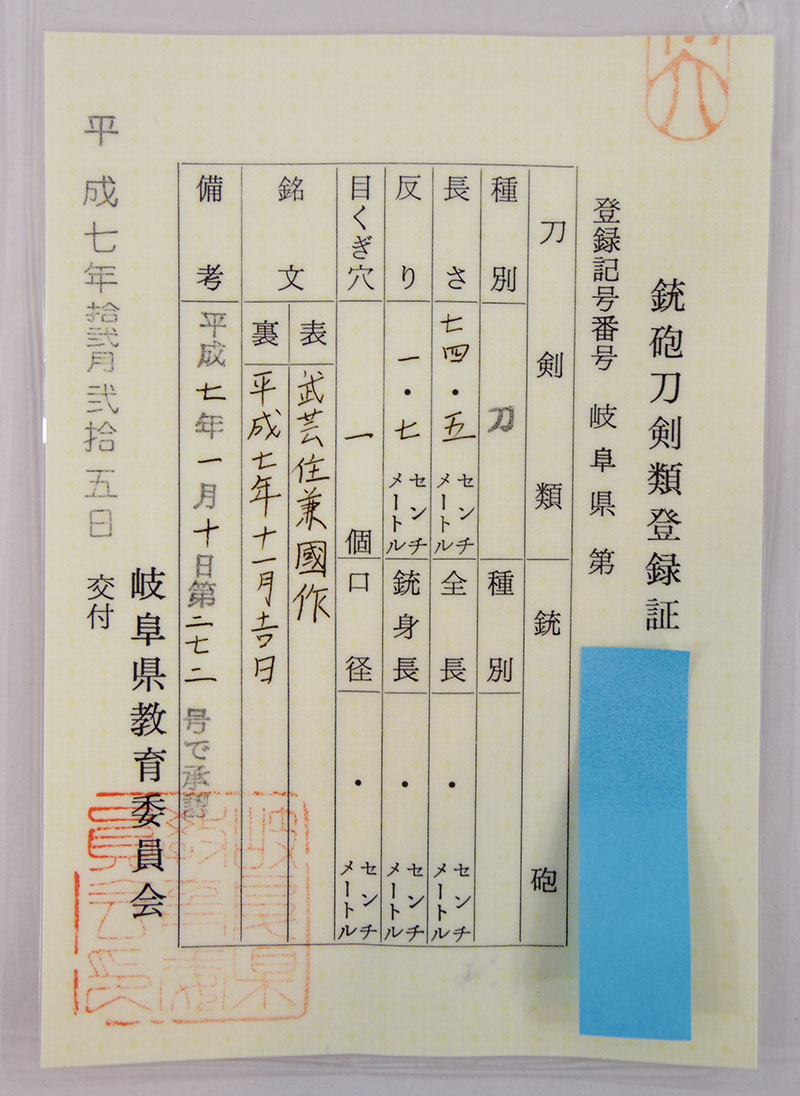 銃砲刀剣類登録証
登録記号番号 岐阜県 第
刀剣類
銃砲
種別
刀
種別
長さ
七四・五
センチメートル
全長
・
センチメートル
反り
一・七
センチメートル
銃身長
・
センチメートル
目くぎ穴
一
個
口径
・
センチメートル
銘文
表
武芸住兼國作
裏
平成七年十一月吉日
備考
平成七年一月十日第二七二号で承認
岐阜県教育委員会
平成七年拾弐月弐拾五日
交付